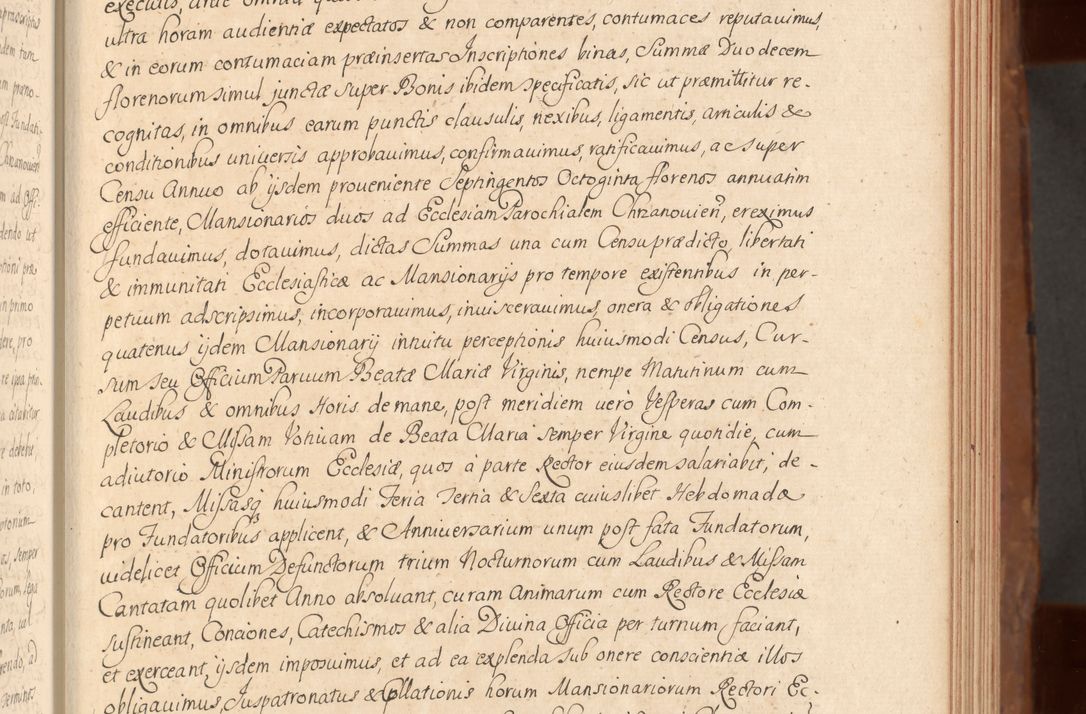 ultra horam audientiæ expectatos & non comparentes, contumaces reputavimus,
& in eorum contumaciam præinsertas Inscriptiones binas, Summæ Duodecem
florenorum simul junctæ super Bonis ibidem specificatis, sic ut præmittitur re-
cognitas, in omnibus earum punctis clausulis, nexibus, ligamentis, articulis &
conditionibus universis approbavimus, confirmavimus, ratificavimus, ac super
Censu Annuo ab ijsdem proveniente Septingentos Octoginta florenos annuatim
efficiente, Mansionarios duos ad Ecclesiam Parochialem Chrzanovien, ereximus
fundavimus, dotavimus, dictas Summas una cum Censu prædicto, libertati
& immunitati Ecclesiasticæ ac Mansionarijs pro tempore existentibus in per-
petuum adscripsimus, incorporavimus, invisceravimus, onera & obligationes
quatenus ijdem Mansionarij intuitu perceptionis huiusmodi Census, Cur-
sum seu Officium Parvum Beatæ Mariæ Virginis, nempe Matutinum cum
Laudibus & omnibus Horis de mane, post meridiem vero Vesperas cum Com-
pletorio & Missam Votivam de Beata Maria semper Virgine quotidie, cum
adiutorio Ministrorum Ecclesiæ, quos à parte Rector eiusdem salariabit, de-
cantent, Missasq huiusmodi Feria Tertia & Sexta cuiuslibet Hebdomadæ
pro Fundatoribus applicent, & Anniversarium unum post fata Fundatorum,
videlicet Officium Defunctorum trium Nocturnorum cum Laudibus & Missam
Cantatam quolibet Anno absolvant, curam Animarum cum Rectore Ecclesiæ
sustineant, Conciones, Catechismos & alia Divina Officia per turnum faciant,
et exerceant, ijsdem imposuimus, et ad ea explenda sub onere conscientiæ illos
obligavimus, Juspatronatus & Collationis horum Mansionariorum Rectori Ec-